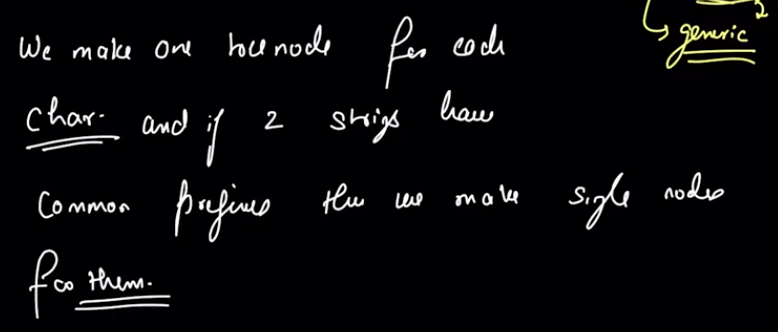 generic 2
We make one treenode for each
char. and if 2 strings have
Common prefixes then we make single nodes
for them.